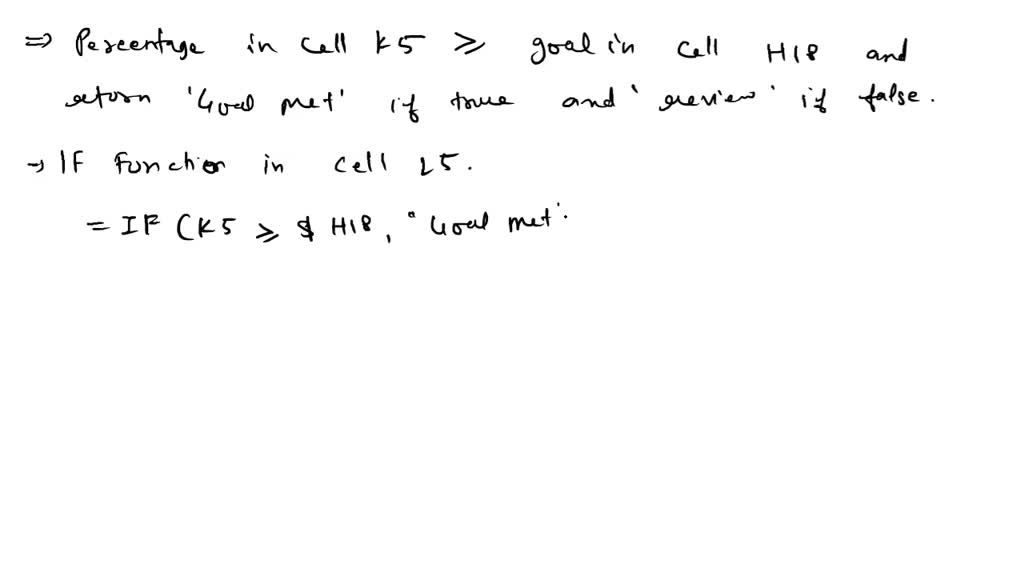 ⇒ Percentage in cell K5 ≥ goal in cell H18 and
return 'Goal met' if true and 'review' if false.
→ IF function in cell L5.
= IF (K5 ≥ $ H18, "Goal met"